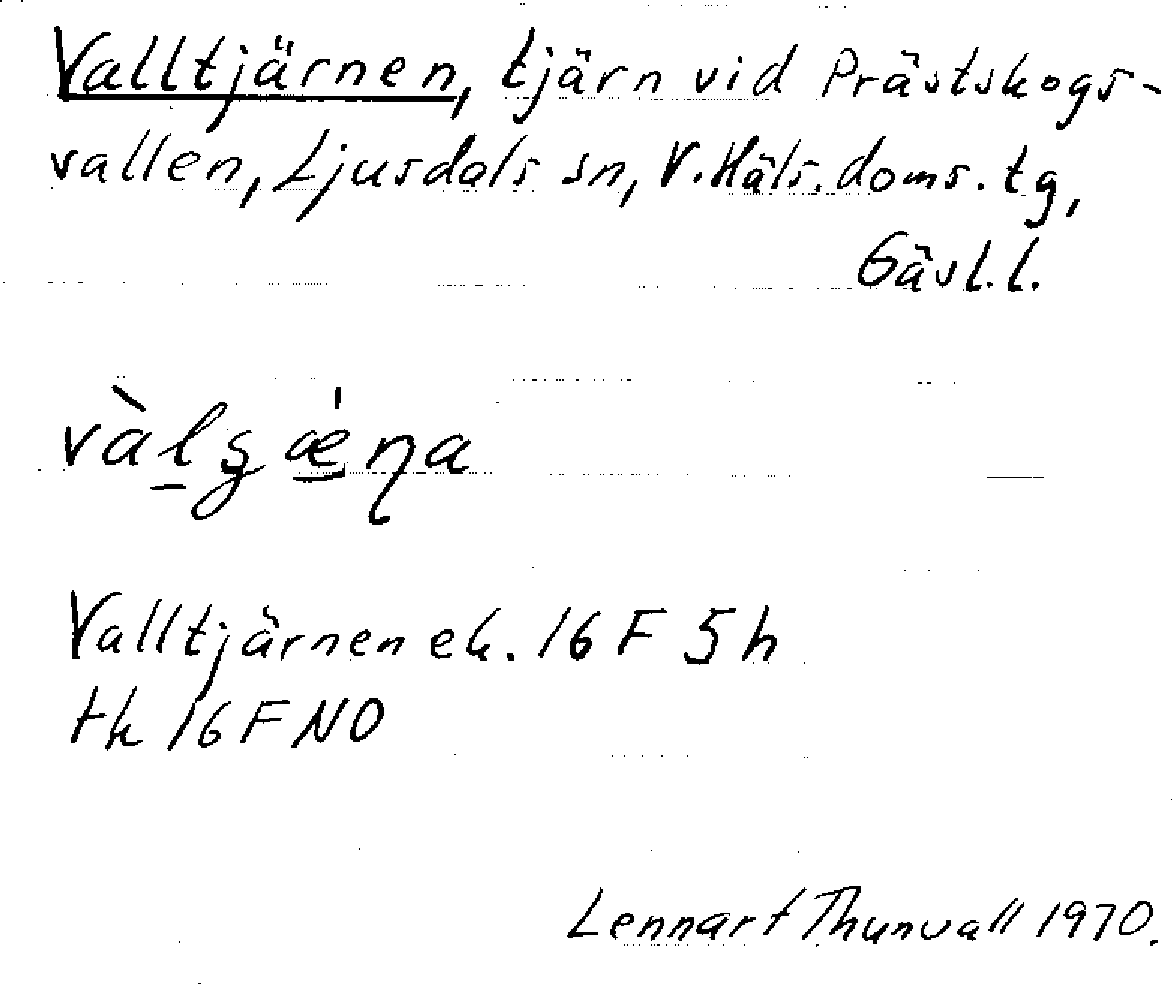 Valltjärnen, tjärn vid Prästskogs-
vallen, Ljusdals sn, V. Häls. doms. tg,
Gävl. l.
Valltjärnen ek. 16 F 5 h
tk 16 F NO
Lennart Thunvall 1970.